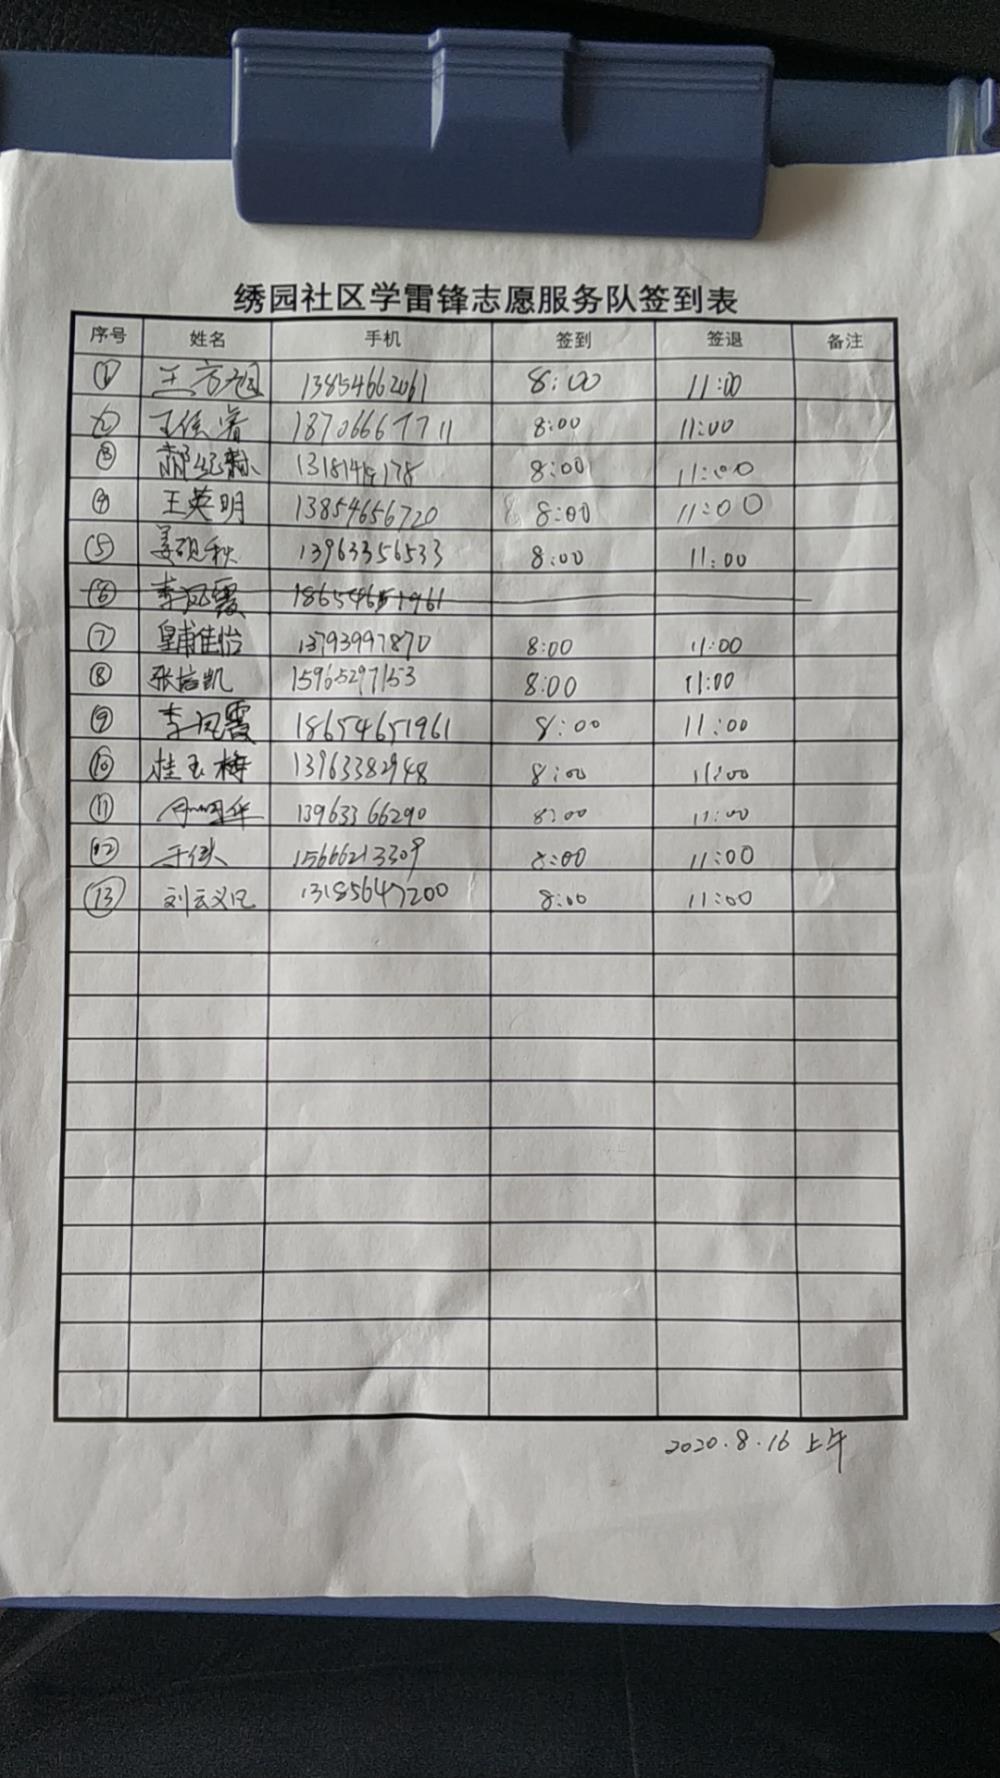 绣园社区学雷锋志愿服务队签到表
序号 姓名 手机 签到 签退 备注
① 王方旭 13854662061 8:00 11:00
② 18706667711 8:00 11:00
③ 8:00 11:00
④ 王英明 13854656720 8:00 11:00
⑤ 姜砚秋 13963356533 8:00 11:00
⑥ 李凤霞 18654651961
⑦ 皇甫佳怡 13793997870 8:00 11:00
⑧ 张培凯 15965297153 8:00 11:00
⑨ 李凤霞 18654651961 8:00 11:00
⑩ 桂玉梅 13963382948 8:00 11:00
⑪ 13963366290 8:00 11:00
⑫ 15666213309 8:00 11:00
⑬ 13185647200 8:00 11:00
2020.8.16 上午